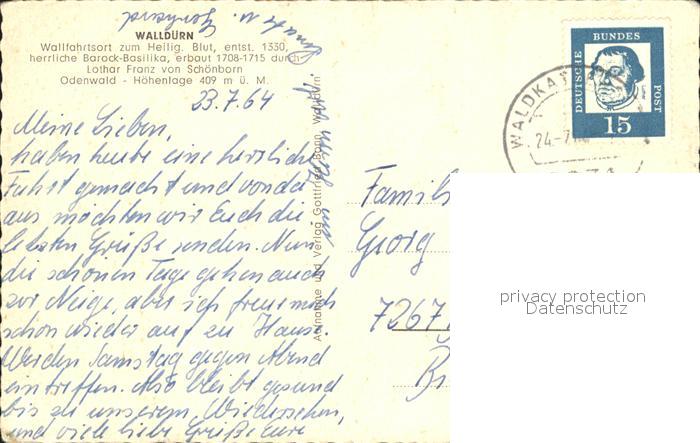 WALLDÜRN
Wallfahrtsort zum Heilig. Blut, entst. 1330,
herrliche Barock-Basilika, erbaut 1708-1715 durch
Lothar Franz von Schönborn
Odenwald - Höhenlage 409 m ü. M.
23.7.64
Meine Lieben,
haben heute eine herrliche
Fahrt gemacht und von da
aus möchten wir Euch die
letzten Grüße senden. Nun
die schönen Tage gehen auch
zur Neige, aber ich freu mich
schon wieder auf zu Hause.
Werden Samstag gegen Abend
eintreffen. Also bleibt gesund
bis zu unserem Wiedersehen,
und viele liebe Grüße Eure
Aufnahme und Verlag Gottfried Bonn, Walldürn
DEUTSCHE BUNDES POST
15
WALDKA
24-7
Famil
Georg
7267
privacy protection
Datenschutz